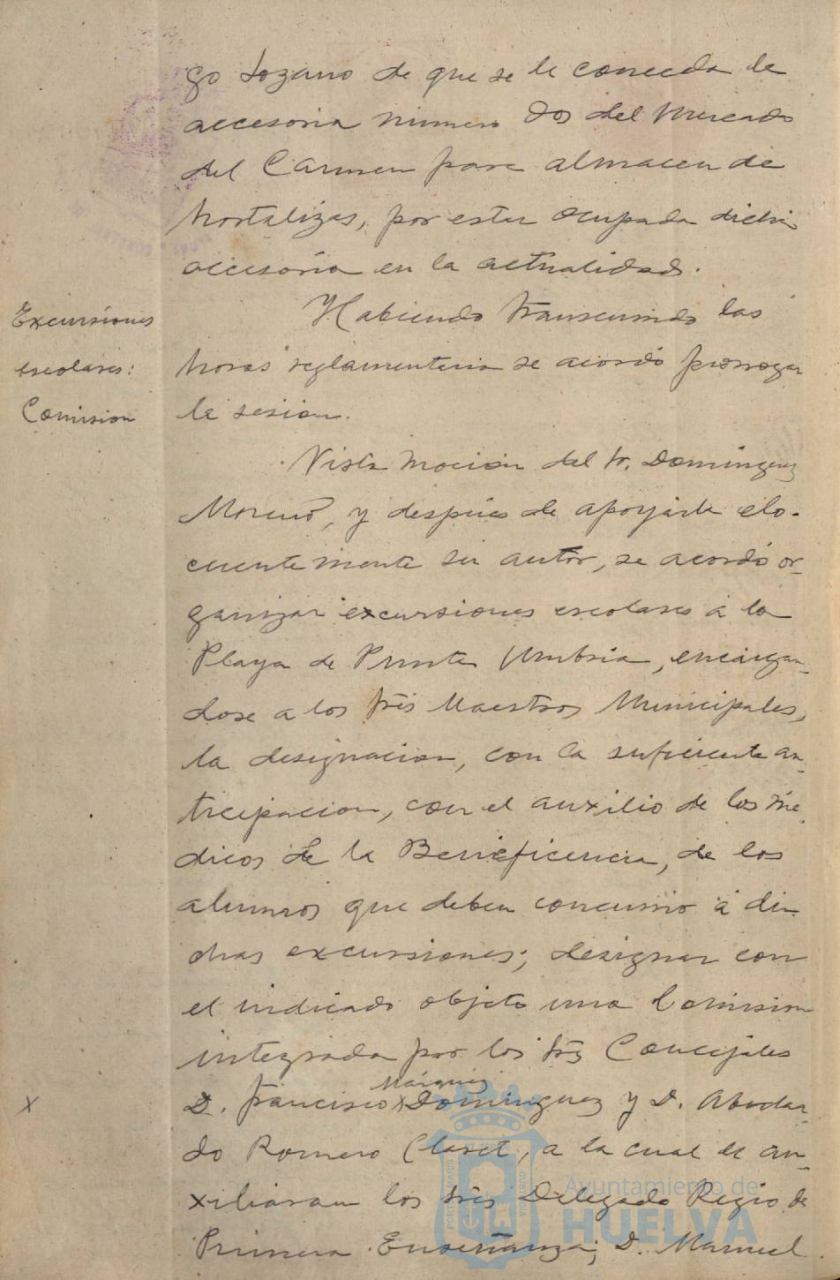 go Lozano de que se le conceda la
accesoria número dos del Mercado
del Carmen para almacen de
hortalizas, por estar ocupada dicha
accesoria en la actualidad.
Excursiones
escolares:
Comision
Habiendo transcurrido las
horas reglamentarias se acordó prorrogar
la sesion.
Vista mocion del Sr. Domínguez
Moreno, y después de apoyarla elo-
cuentemente su autor, se acordó or-
ganizar excursiones escolares a la
Playa de Punta Umbría, encargan-
dose a los Sres Maestros Municipales,
la designacion, con la suficiente an-
ticipacion, con el auxilio de los mé-
dicos de la Beneficencia, de los
alumnos que deben concurrir á di-
chas excursiones; designar con
el indicado objeto una Comision
integrada por los Sres Concejales
Márquez
x D. Francisco x Dominguez y D. Abelar-
do Romero Claret, a la cual el au-
xiliaran los Sres Delegado Regio de
Primera Enseñanza; D. Manuel
Ayuntamiento de
HUELVA